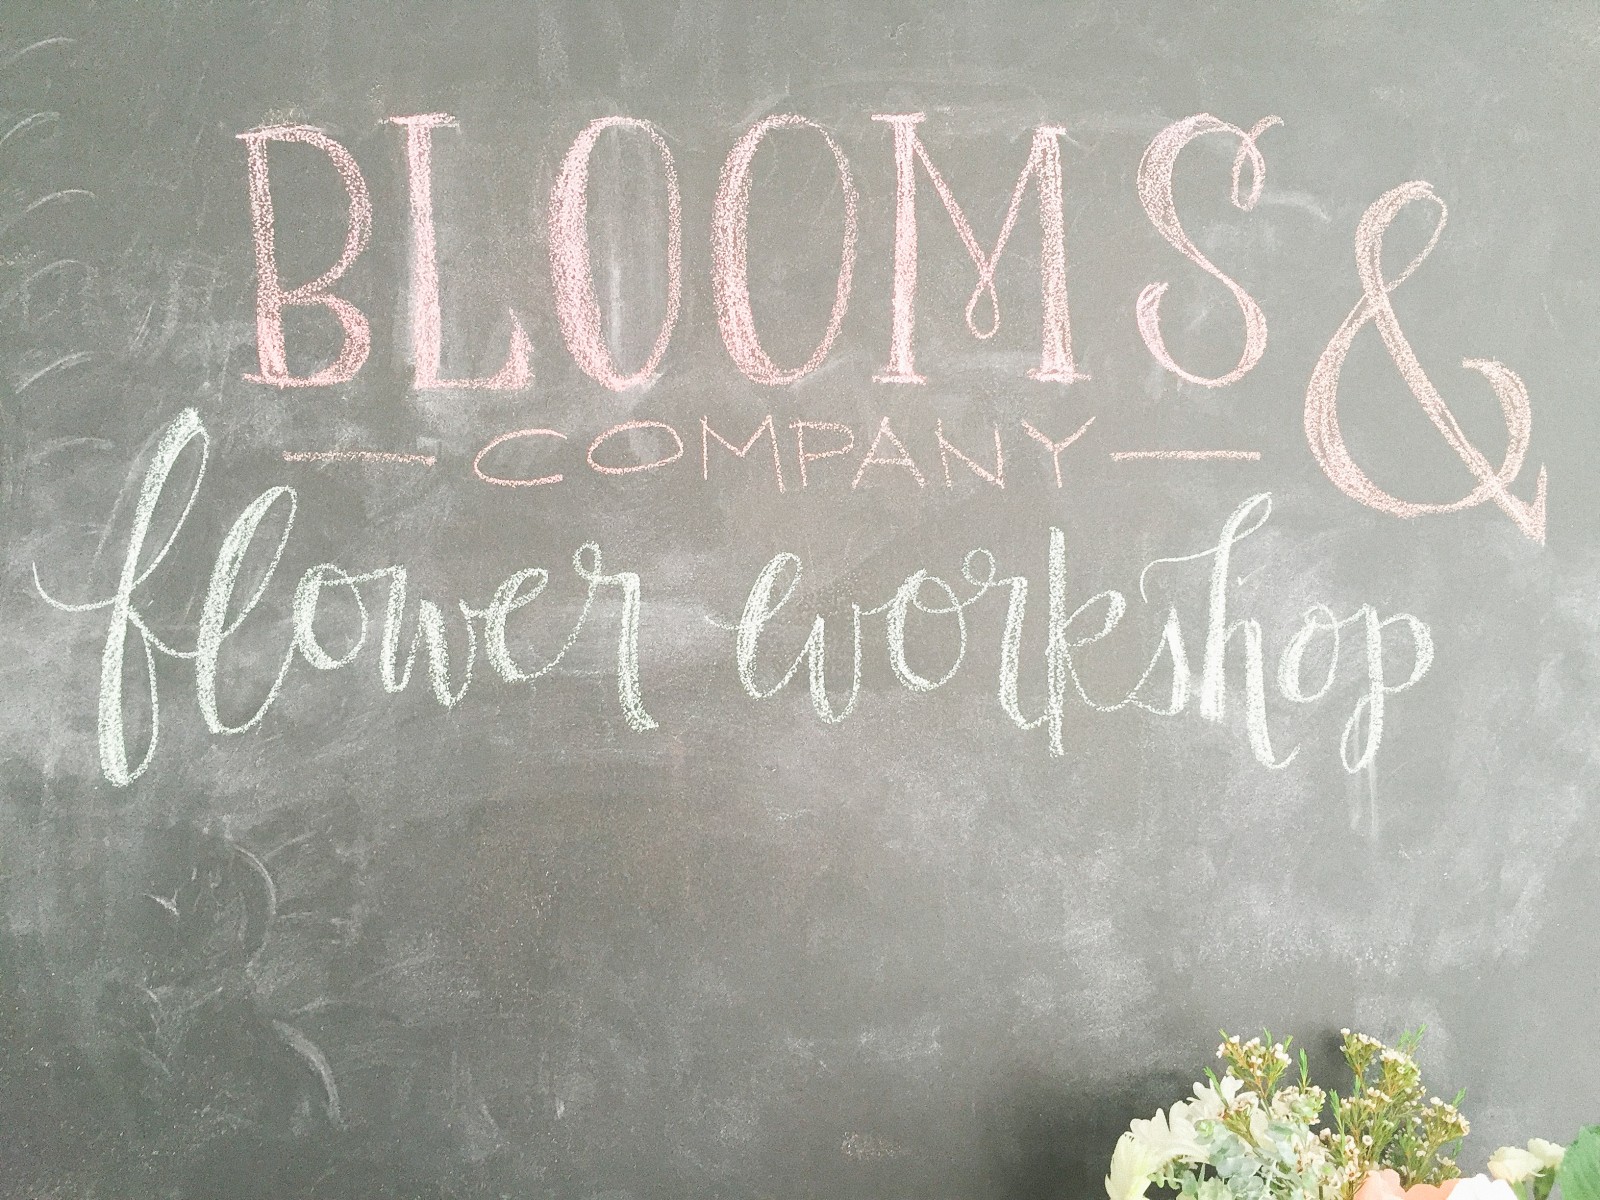 BLOOMS &
— COMPANY —
flower workshop